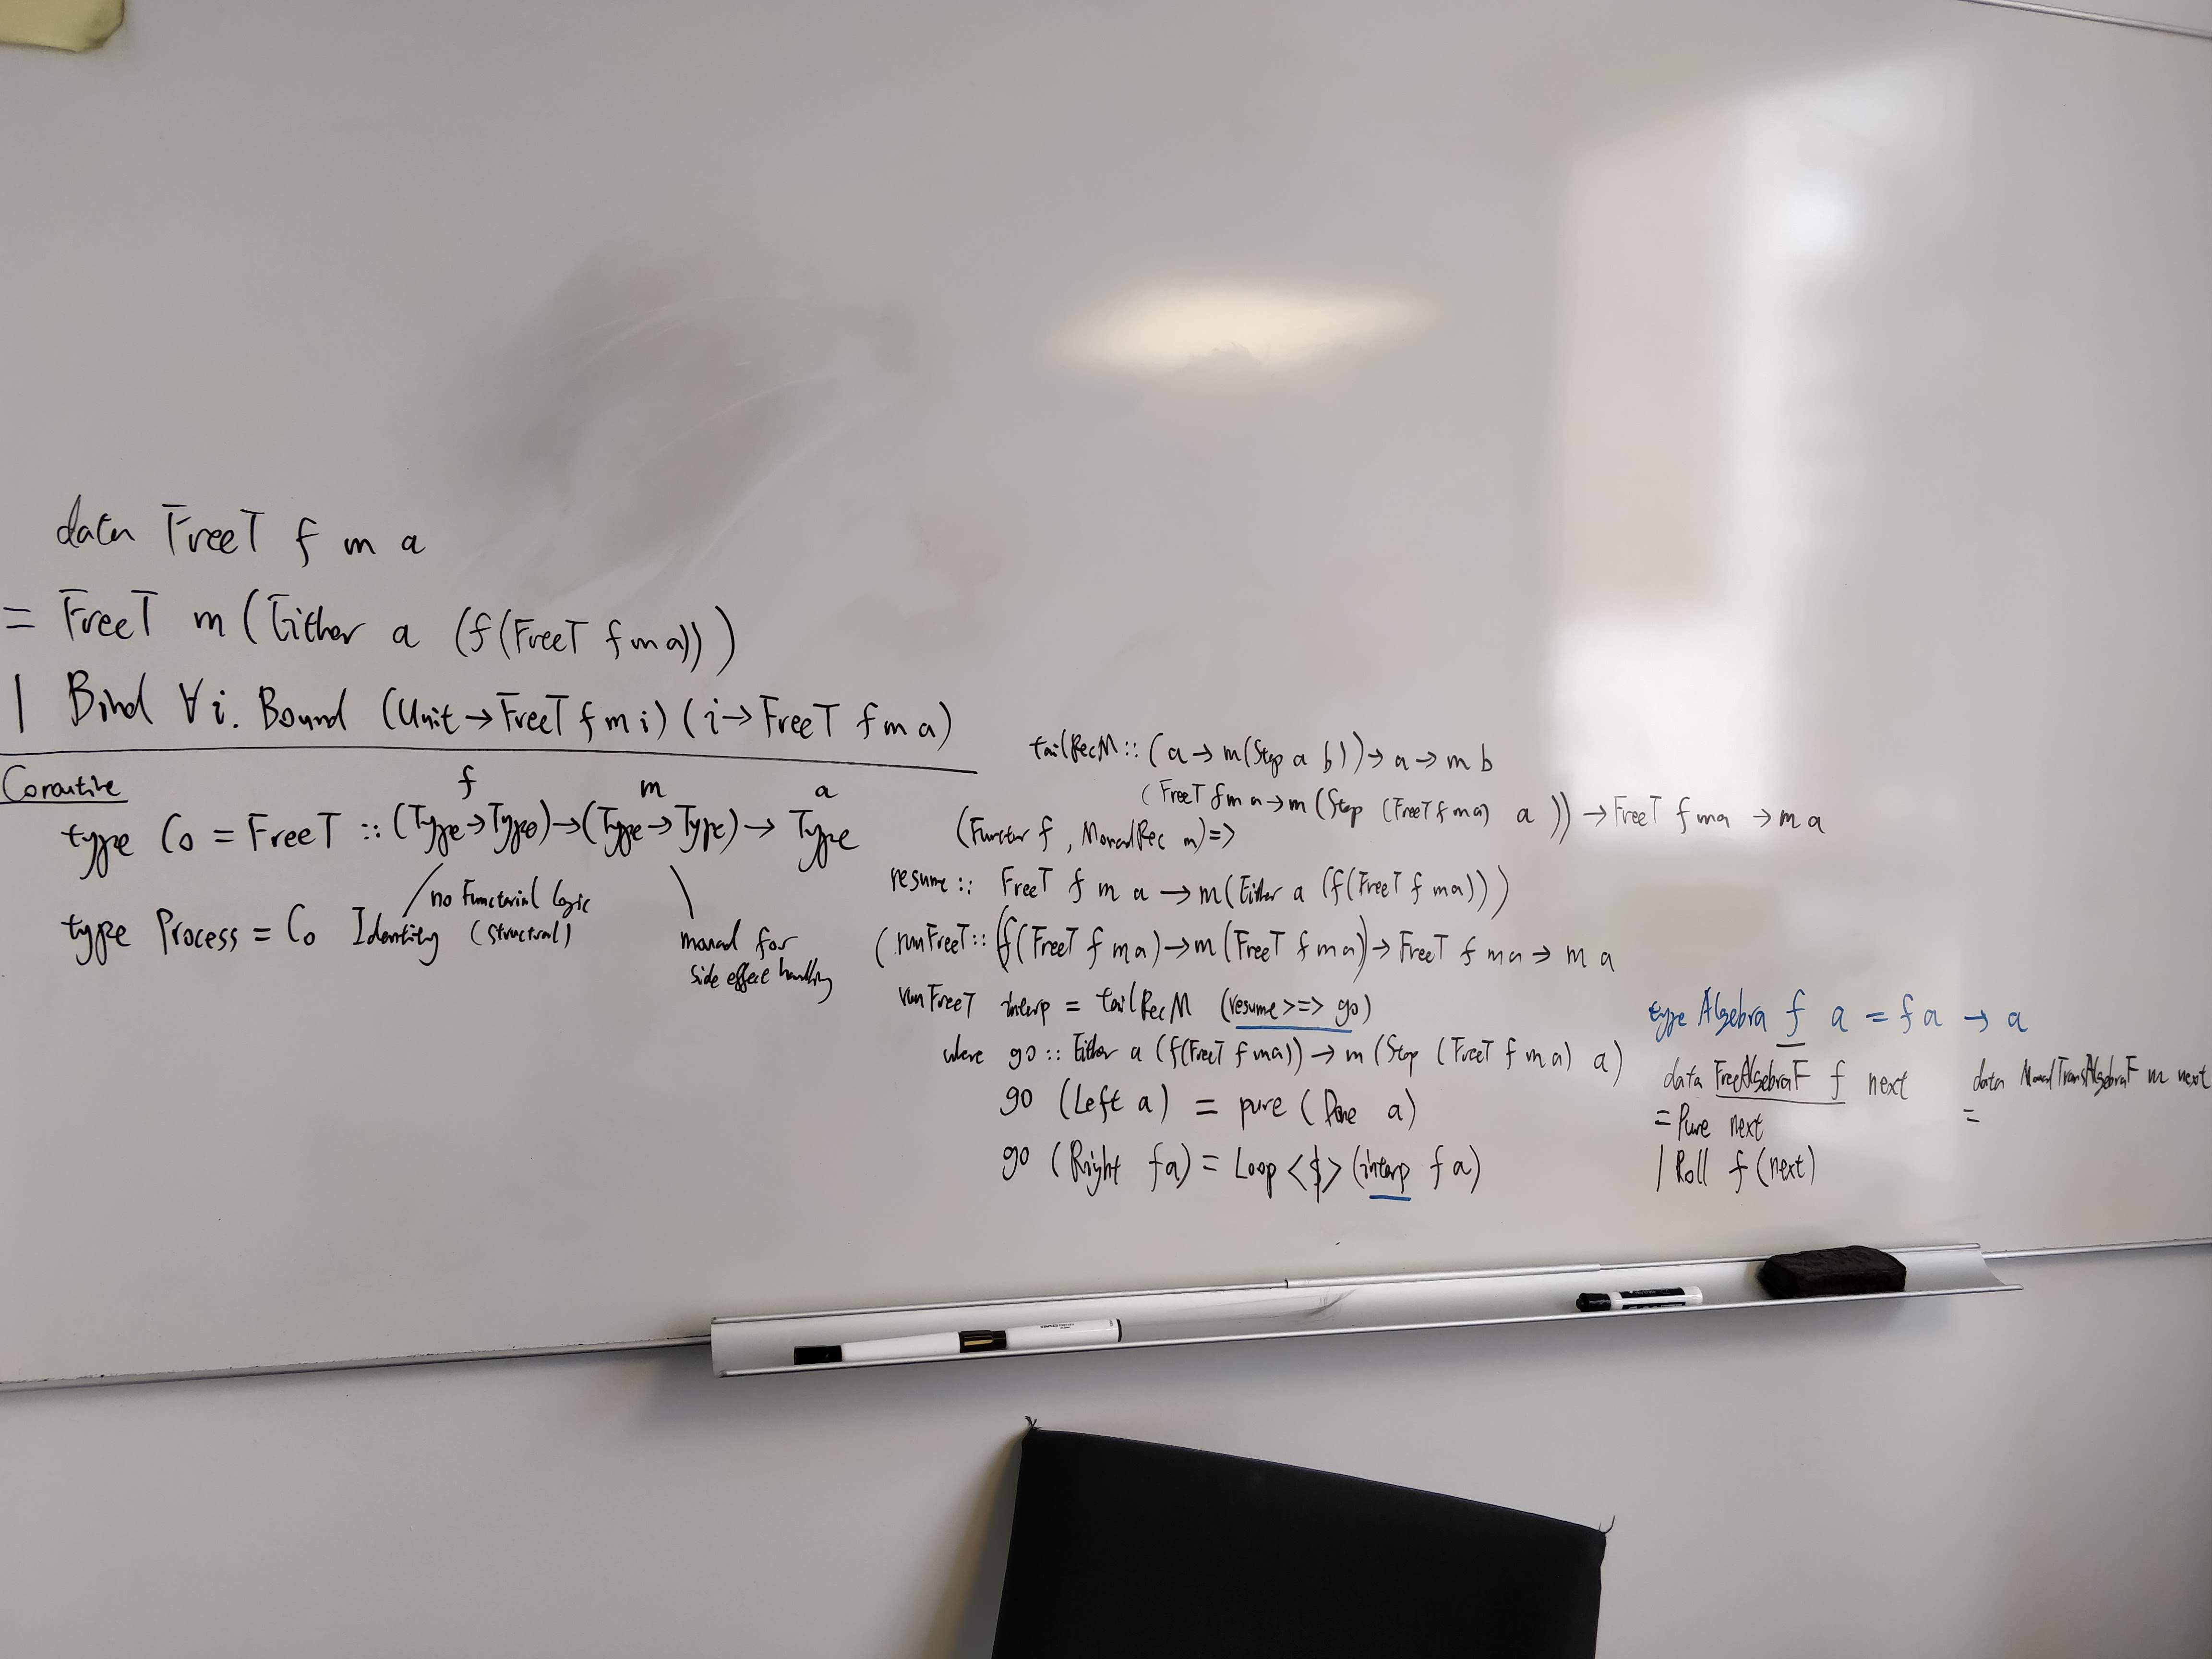 data FreeT f m a
= FreeT m (Either a (f (FreeT f m a)))
| Bind ∀i. Bound (Unit → FreeT f m i) (i → FreeT f m a)
Coroutine
f m a
type Co = FreeT :: (Type → Type) → (Type → Type) → Type
no Functorial Logic
(structural)
type Process = Co Identity
monad for
side effect handling
tailRecM :: (a → m (Step a b)) → a → m b
(FreeT f m a → m (Step (FreeT f m a) a)) → FreeT f m a → m a
(Functor f, MonadRec m) =>
resume :: FreeT f m a → m (Either a (f (FreeT f m a)))
(runFreeT :: (f (FreeT f m a) → m (FreeT f m a)) → FreeT f m a → m a
runFreeT interp = tailRecM (resume >=> go)
where go :: Either a (f (FreeT f m a)) → m (Step (FreeT f m a) a)
go (Left a) = pure (Done a)
go (Right fa) = Loop <$> (interp fa)
type Algebra f a = f a → a
data FreeAlgebraF f next
= Pure next
| Roll f (next)
data MonadTransAlgebraF m next
=